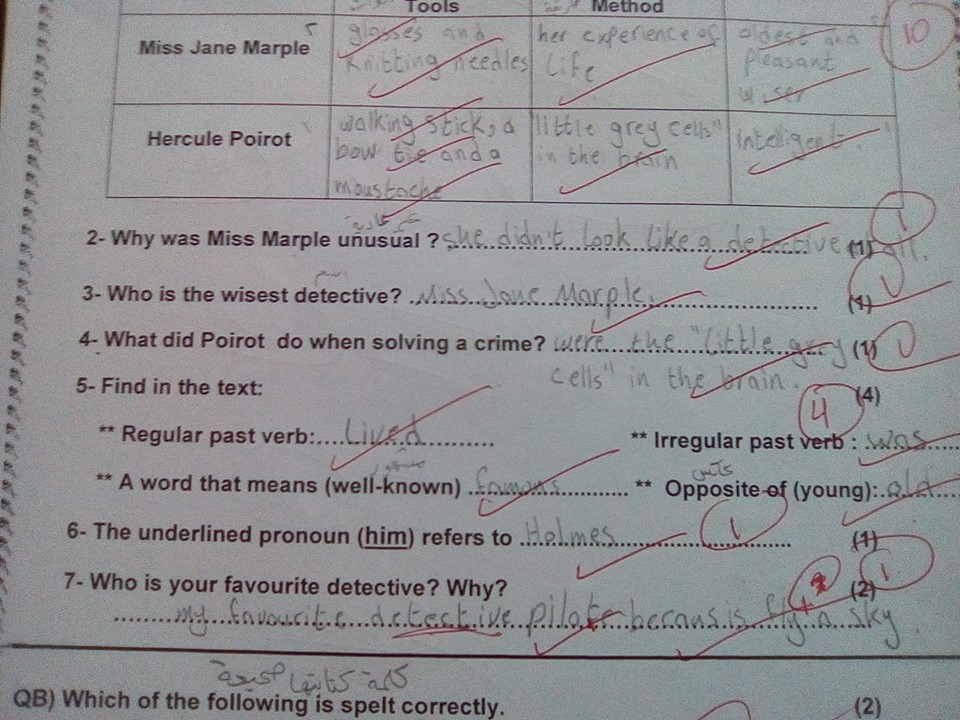 Tools Method
Miss Jane Marple glasses and Knitting needles her experience of Life oldest and pleasant wiser 10
Hercule Poirot walking stick, a bow tie and a moustache "little grey cells" in the brain inteligent.
غير عادية
2- Why was Miss Marple unusual ? she didn't look like a detective (1) all. 1
اسم
3- Who is the wisest detective? Miss Jane Marple. (1) 1
4- What did Poirot do when solving a crime? were the "little grey (1) 1
cells" in the brain.
5- Find in the text: 4 (4)
** Regular past verb: Lived ** Irregular past verb : was
مشهور عكس
** A word that means (well-known) famous ** Opposite of (young): old
6- The underlined pronoun (him) refers to Holmes 1 (1)
7- Who is your favourite detective? Why? (2) 1
my favourite detective pilote becaus is fly a sky.
كلمة كتابتها صحيحة
QB) Which of the following is spelt correctly. (2)